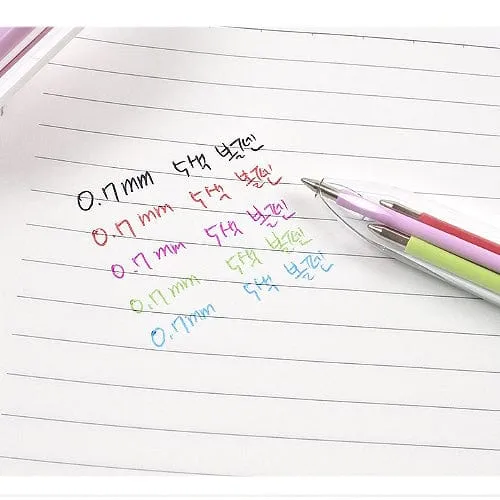 0.7mm 5색 볼펜
0.7mm 5색 볼펜
0.7mm 5색 볼펜
0.7mm 5색 볼펜
0.7mm 5색 볼펜